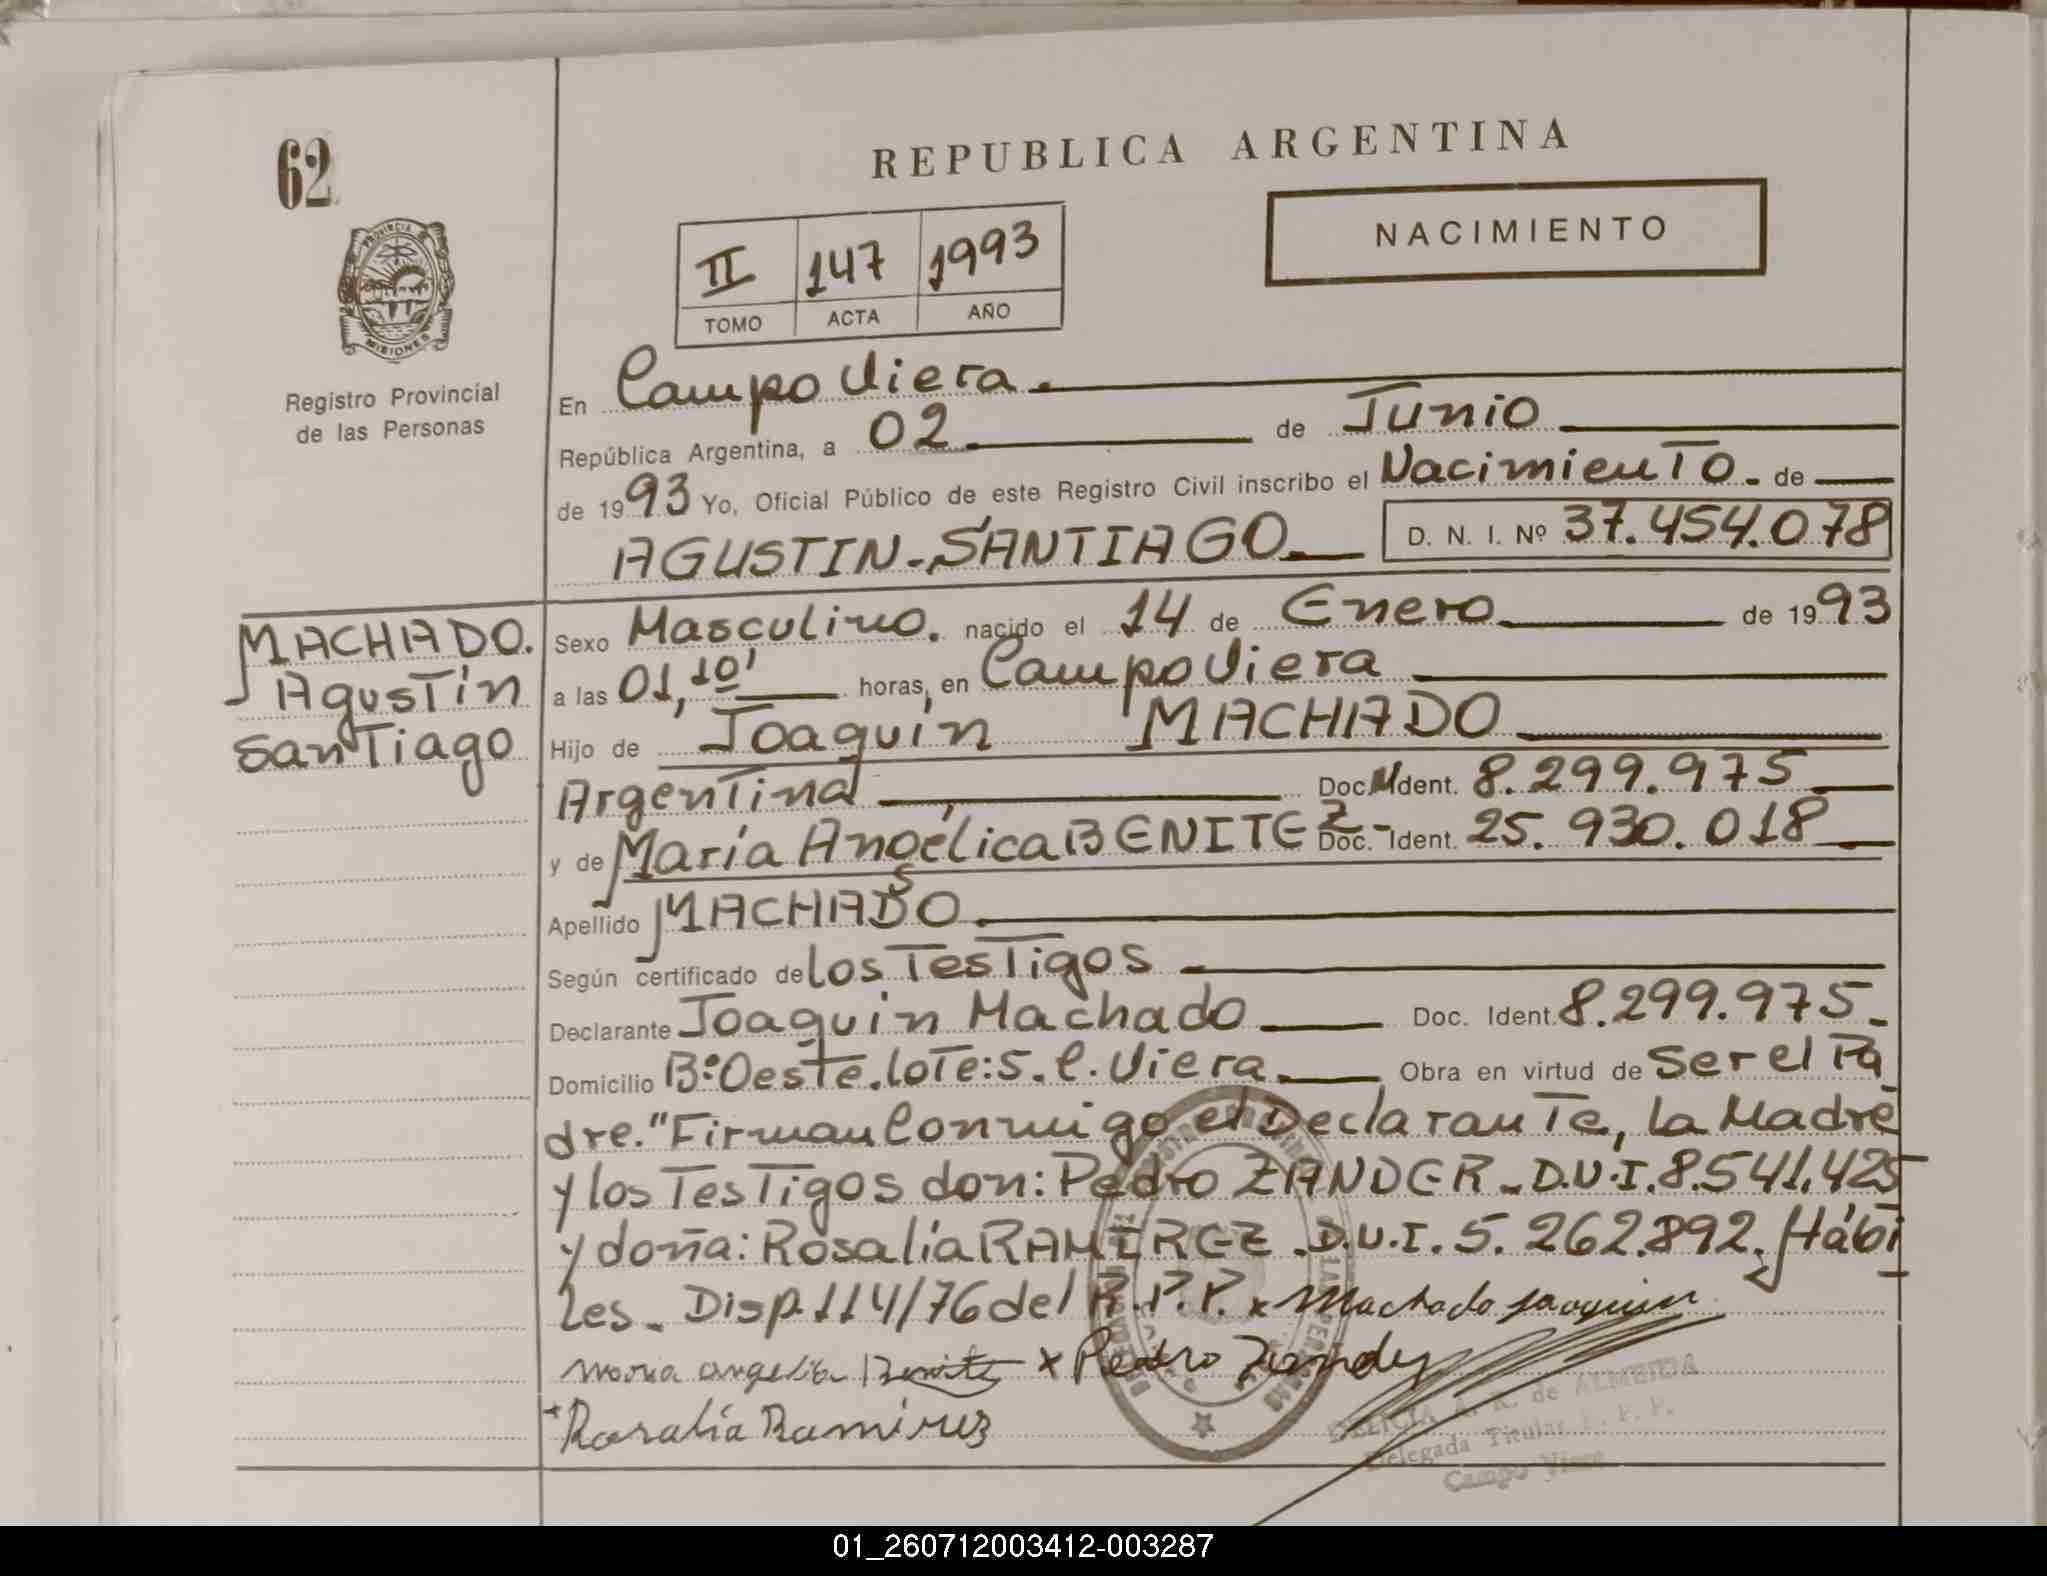 62
REPUBLICA ARGENTINA
NACIMIENTO
II 147 1993
TOMO ACTA AÑO
PROVINCIA
MISIONES
Registro Provincial
de las Personas
En Campo Viera.
República Argentina, a 02 de Junio
de 1993 Yo, Oficial Público de este Registro Civil inscribo el Nacimiento. de
AGUSTIN-SANTIAGO D. N. I. Nº 37.454.078
MACHADO.
Agustín
Santiago
Sexo Masculino. nacido el 14 de Enero de 1993
a las 01,10' horas, en Campo Viera
Hijo de Joaquín MACHADO
Argentina Doc. M Ident. 8.299.975
y de María Angélica BENITEZ- Doc. Ident. 25.930.018
Apellido MACHADO
Según certificado de los Testigos
Declarante Joaquín Machado Doc. Ident. 8.299.975-
Domicilio Bº: Oeste. lote: 5. C. Viera. Obra en virtud de Ser el Pa
dre." Firman Conmigo el Declarante, la Madre
y los Testigos don: Pedro ZANDER - D.N.I. 8.541.425
y doña: Rosalía RAMIREZ. D.N.I. 5.262.892. Hábi
les. Disp. 114/76 del R.P.P. x Machado Joaquin
Maria angelica Benitez x Pedro Zander
+ Rosalía Ramírez
DELICIA A. R. de ALMEIDA
Delegada Titular R. P. P.
Campo Viera
01_260712003412-003287